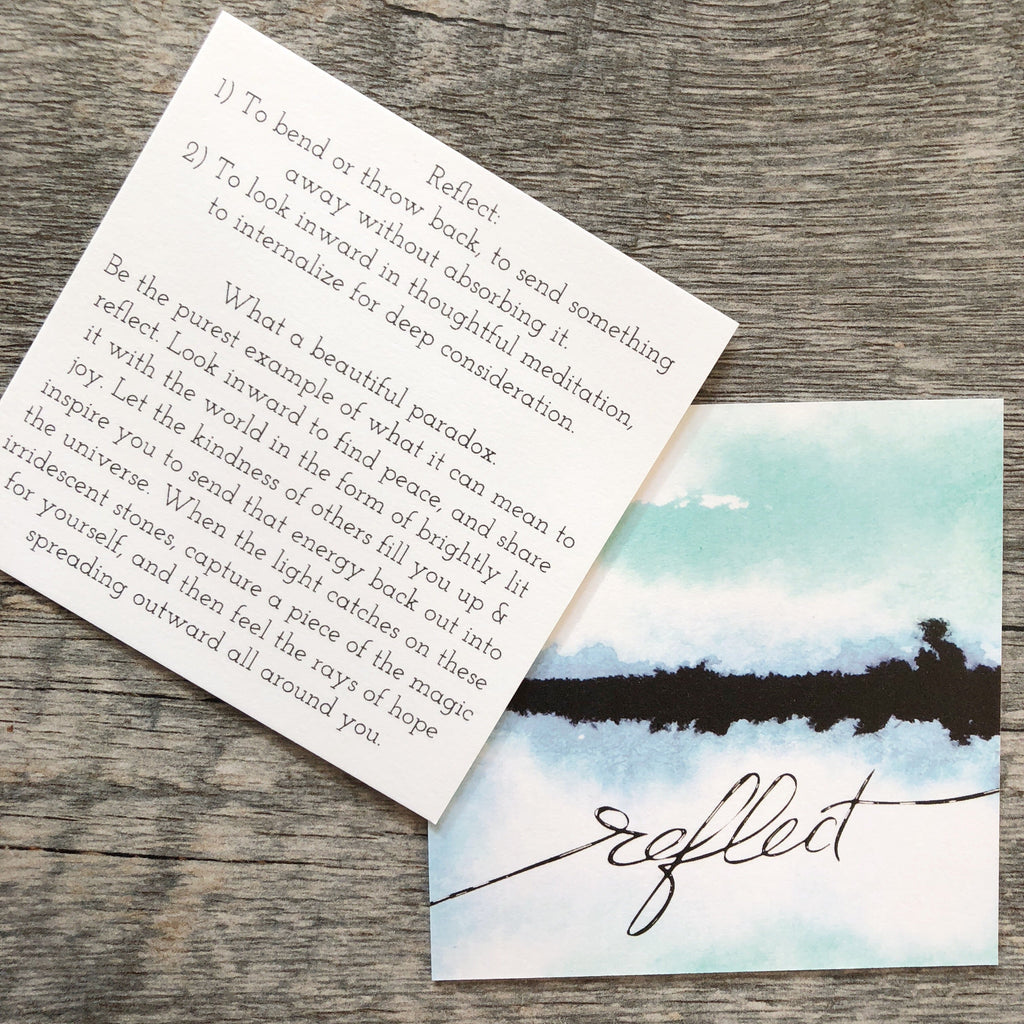 Reflect:
1) To bend or throw back, to send something
away without absorbing it
2) To look inward in thoughtful meditation,
to internalize for deep consideration.
What a beautiful paradox.
Be the purest example of what it can mean to
reflect. Look inward to find peace, and share
it with the world in the form of brightly lit
joy. Let the kindness of others fill you up &
inspire you to send that energy back out into
the universe. When the light catches on these
irridescent stones, capture a piece of the magic
for yourself, and then feel the rays of hope
spreading outward all around you.
reflect